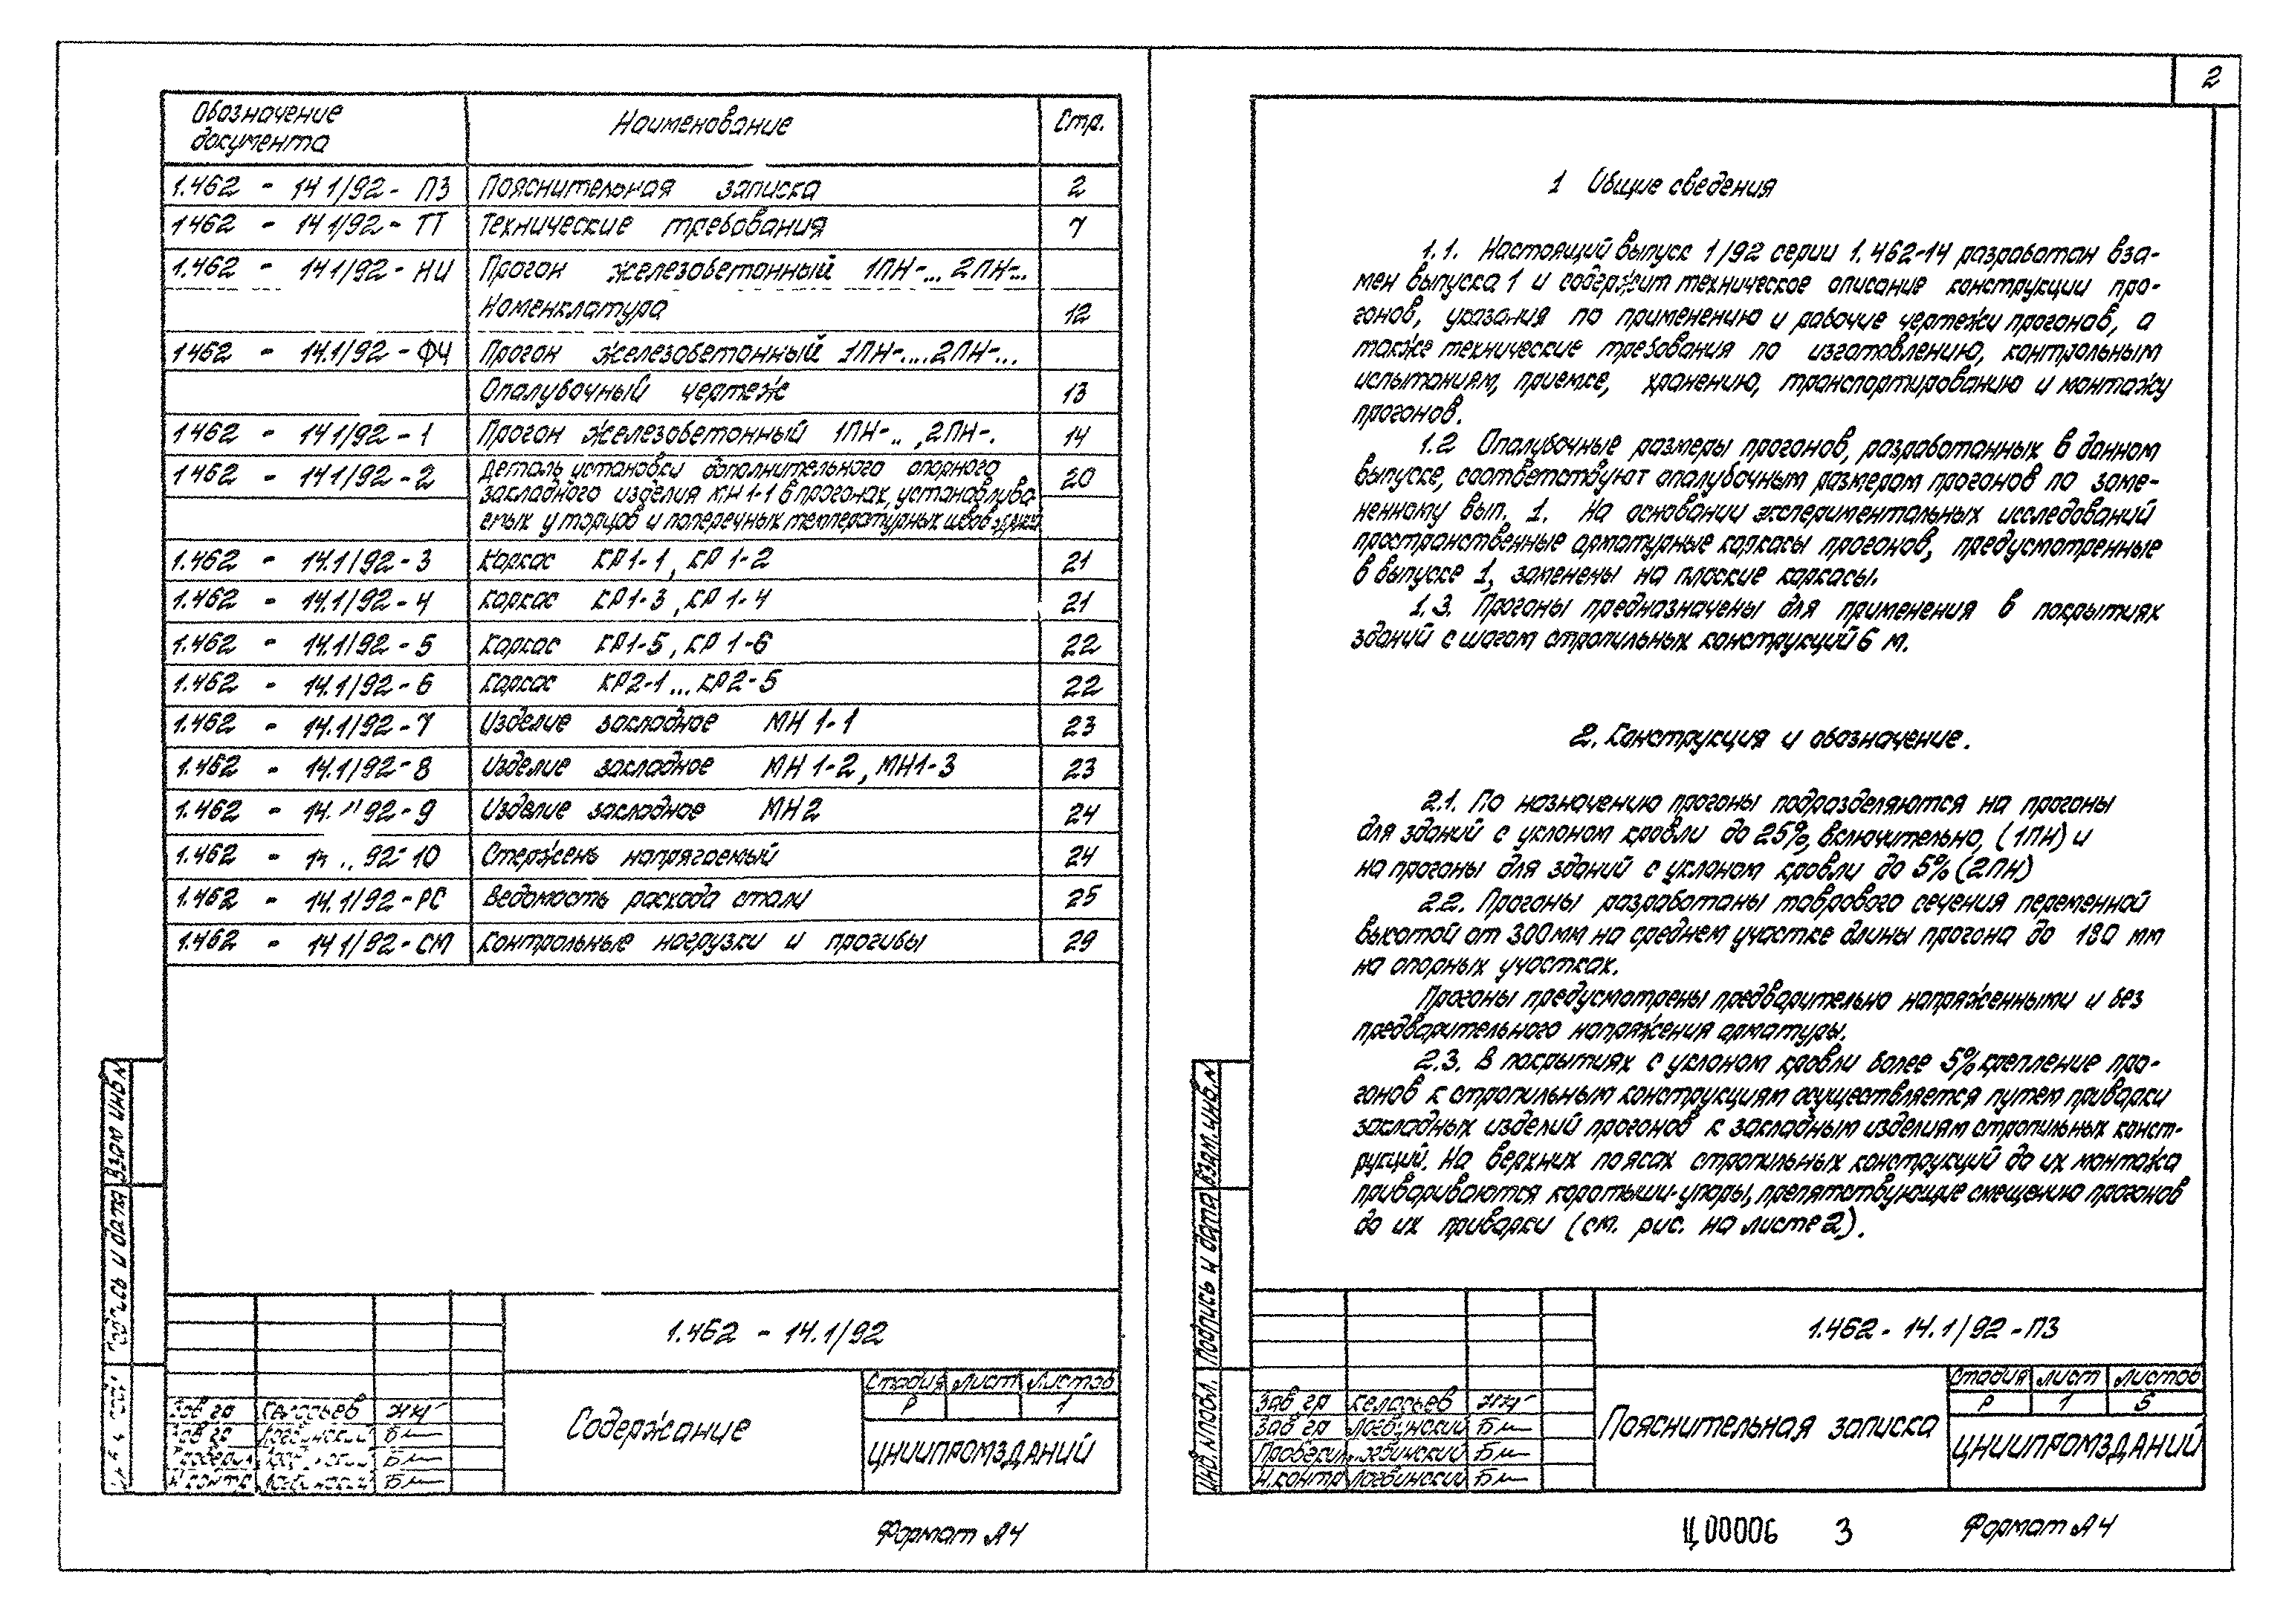 Обозначение документа Наименование Стр.
1.462 - 14 1/92 - ПЗ Пояснительная записка 2
1462 - 14 1/92 - ТТ Технические требования 7
1.462 - 14 1/92 - НИ Прогон железобетонный 1ПН-... 2ПН-..
Номенклатура 12
1462 - 14.1/92 - ФЧ Прогон железобетонный 1ПН-....2ПН-...
Опалубочный чертеж 13
1462 - 14 1/92 - 1 Прогон железобетонный 1ПН-.. ,2ПН-. 14
1462 - 14 1/92 - 2 Деталь установки дополнительного опорного 20
закладного изделия МН 1-1 в прогонах, устанавлива
емых у торцов и поперечных температурных швов
1.462 - 14.1/92 - 3 Каркас КР1-1, КР 1-2 21
1.462 - 14.1/92 - 4 Каркас КР1-3, КР 1-4 21
1.462 - 14.1/92 - 5 Каркас КР1-5, КР 1-6 22
1.462 - 14.1/92 - 6 Каркас КР2-1...КР2-5 22
1.462 - 14.1/92 - 7 Изделие закладное МН 1-1 23
1.462 - 14.1/92 - 8 Изделие закладное МН 1-2, МН1-3 23
1.462 - 14. 92 - 9 Изделие закладное МН2 24
1.462 - 14 .. 92 - 10 Стержень напрягаемый 24
1.462 - 14.1/92 - РС Ведомость расхода стали 25
1.462 - 14 1/92 - СМ Контрольные нагрузки и прогибы 29
Взам инв.N
Подпись и дата
1.462 - 14.1/92
Содержание
Стадия Лист Листов
Р 1
ЦНИИПРОМЗДАНИЙ
Зав гр Келасьев
Зав гр Логвинский
Проверил
Н контр
Формат А4
2
1 Общие сведения
1.1. Настоящий выпуск 1/92 серии 1.462-14 разработан вза-
мен выпуска 1 и содержит техническое описание конструкции про-
гонов, указания по применению и рабочие чертежи прогонов, а
также технические требования по изготовлению, контрольным
испытаниям, приемке, хранению, транспортированию и монтажу
прогонов.
1.2 Опалубочные размеры прогонов, разработанных в данном
выпуске, соответствуют опалубочным размерам прогонов по заме-
ненному вып. 1. На основании экспериментальных исследований
пространственные арматурные каркасы прогонов, предусмотренные
в выпуске 1, заменены на плоские каркасы.
1.3. Прогоны предназначены для применения в покрытиях
зданий с шагом стропильных конструкций 6 м.
2. Конструкция и обозначение.
2.1. По назначению прогоны подразделяются на прогоны
для зданий с уклоном кровли до 25%, включительно, (1ПН) и
на прогоны для зданий с уклоном кровли до 5% (2ПН)
2.2. Прогоны разработаны таврового сечения переменной
высотой от 300 мм на среднем участке длины прогона до 180 мм
на опорных участках.
Прогоны предусмотрены предварительно напряженными и без
предварительного напряжения арматуры.
2.3. В покрытиях с уклоном кровли более 5% крепление про-
гонов к стропильным конструкциям осуществляется путем приварки
закладных изделий прогонов к закладным изделиям стропильных конст-
рукций. На верхних поясах стропильных конструкций до их монтажа
привариваются коротыши-упоры, препятствующие смещению прогонов
до их приварки (см. рис. на листе 2).
Взам.инв.N
Подпись и дата
Инв.N подл.
1.462 - 14.1/92 - ПЗ
Пояснительная записка
Стадия Лист Листов
Р 1 5
ЦНИИПРОМЗДАНИЙ
Зав гр Келасьев
Зав гр Логвинский
Проверил Логвинский
Н.контр Логвинский
Ц00006 3 Формат А4